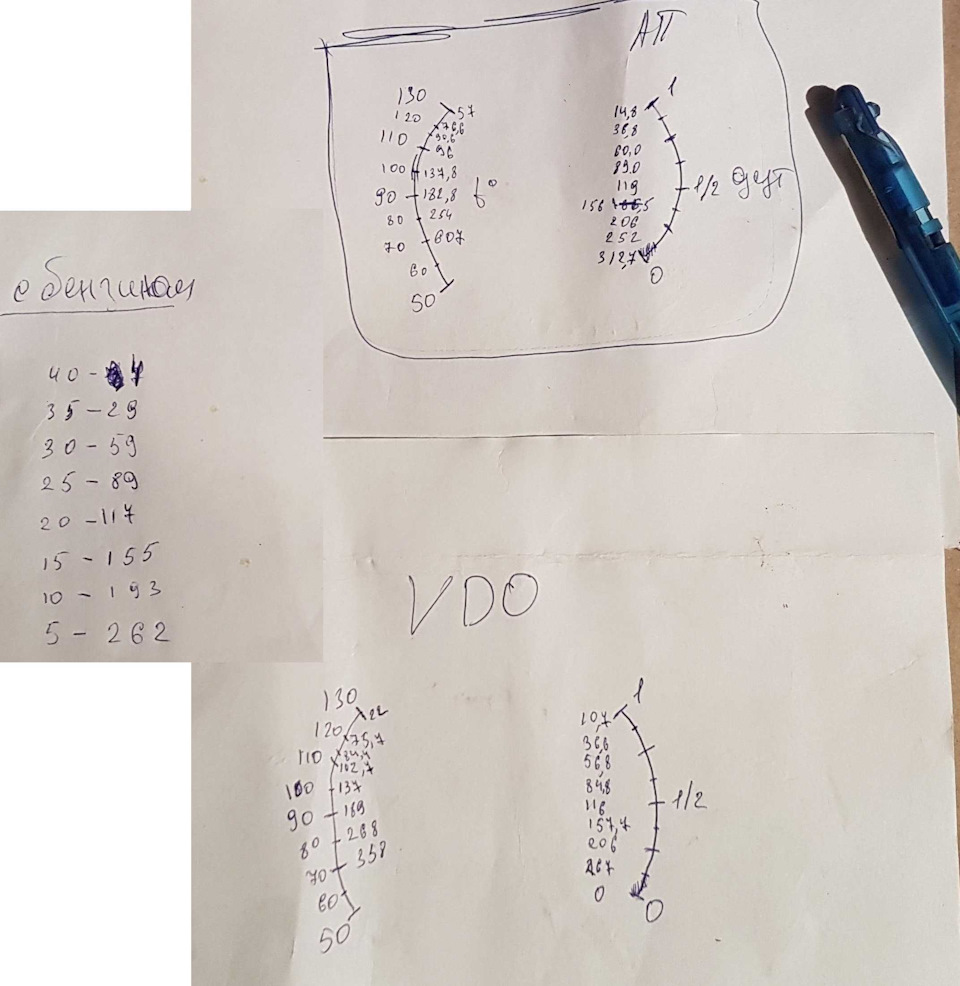 АП
130
57
120
76,6
110
90,6
96
100
137,8
90
182,8
t°
80
254
70
607
60
50
1
14,8
36,8
60,0
89,0
119
1/2
дут
156
206
252
312,7
0
с бензином
40 -
35 - 29
30 - 59
25 - 89
20 - 117
15 - 155
10 - 193
5 - 262
VDO
130
22
120
75,7
110
84,4
102,7
100
137
90
189
80
268
70
358
60
50
1
10,7
36,6
56,8
84,8
116
1/2
157,7
206
267
0
0